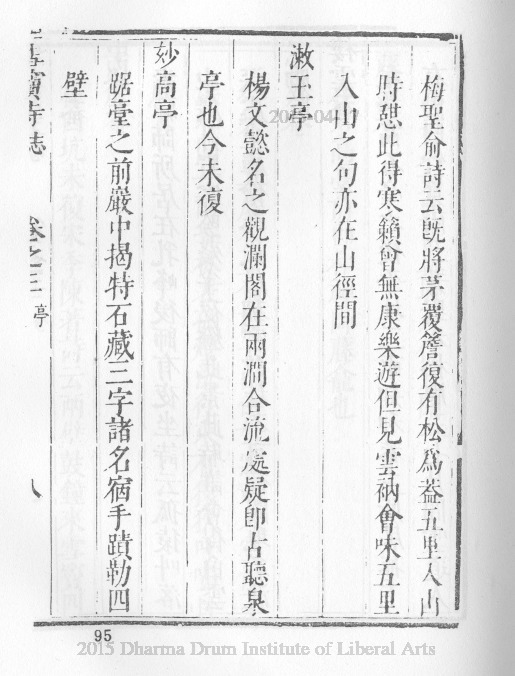 梅聖俞詩云既將茅覆簷復有松為葢五里入山
時憇此得寒籟曾無康樂遊但見雲衲會味五里
入山之句亦在山徑間
漱玉亭
楊文懿名之觀瀾閣在兩澗合流處疑卽古聽泉
亭也今未復
妙高亭
踞臺之前巖中揭特石藏三字諸名宿手蹟勒四
壁
寶寺誌 卷之三 亭 八
95
2015 Dharma Drum Institute of Liberal Arts